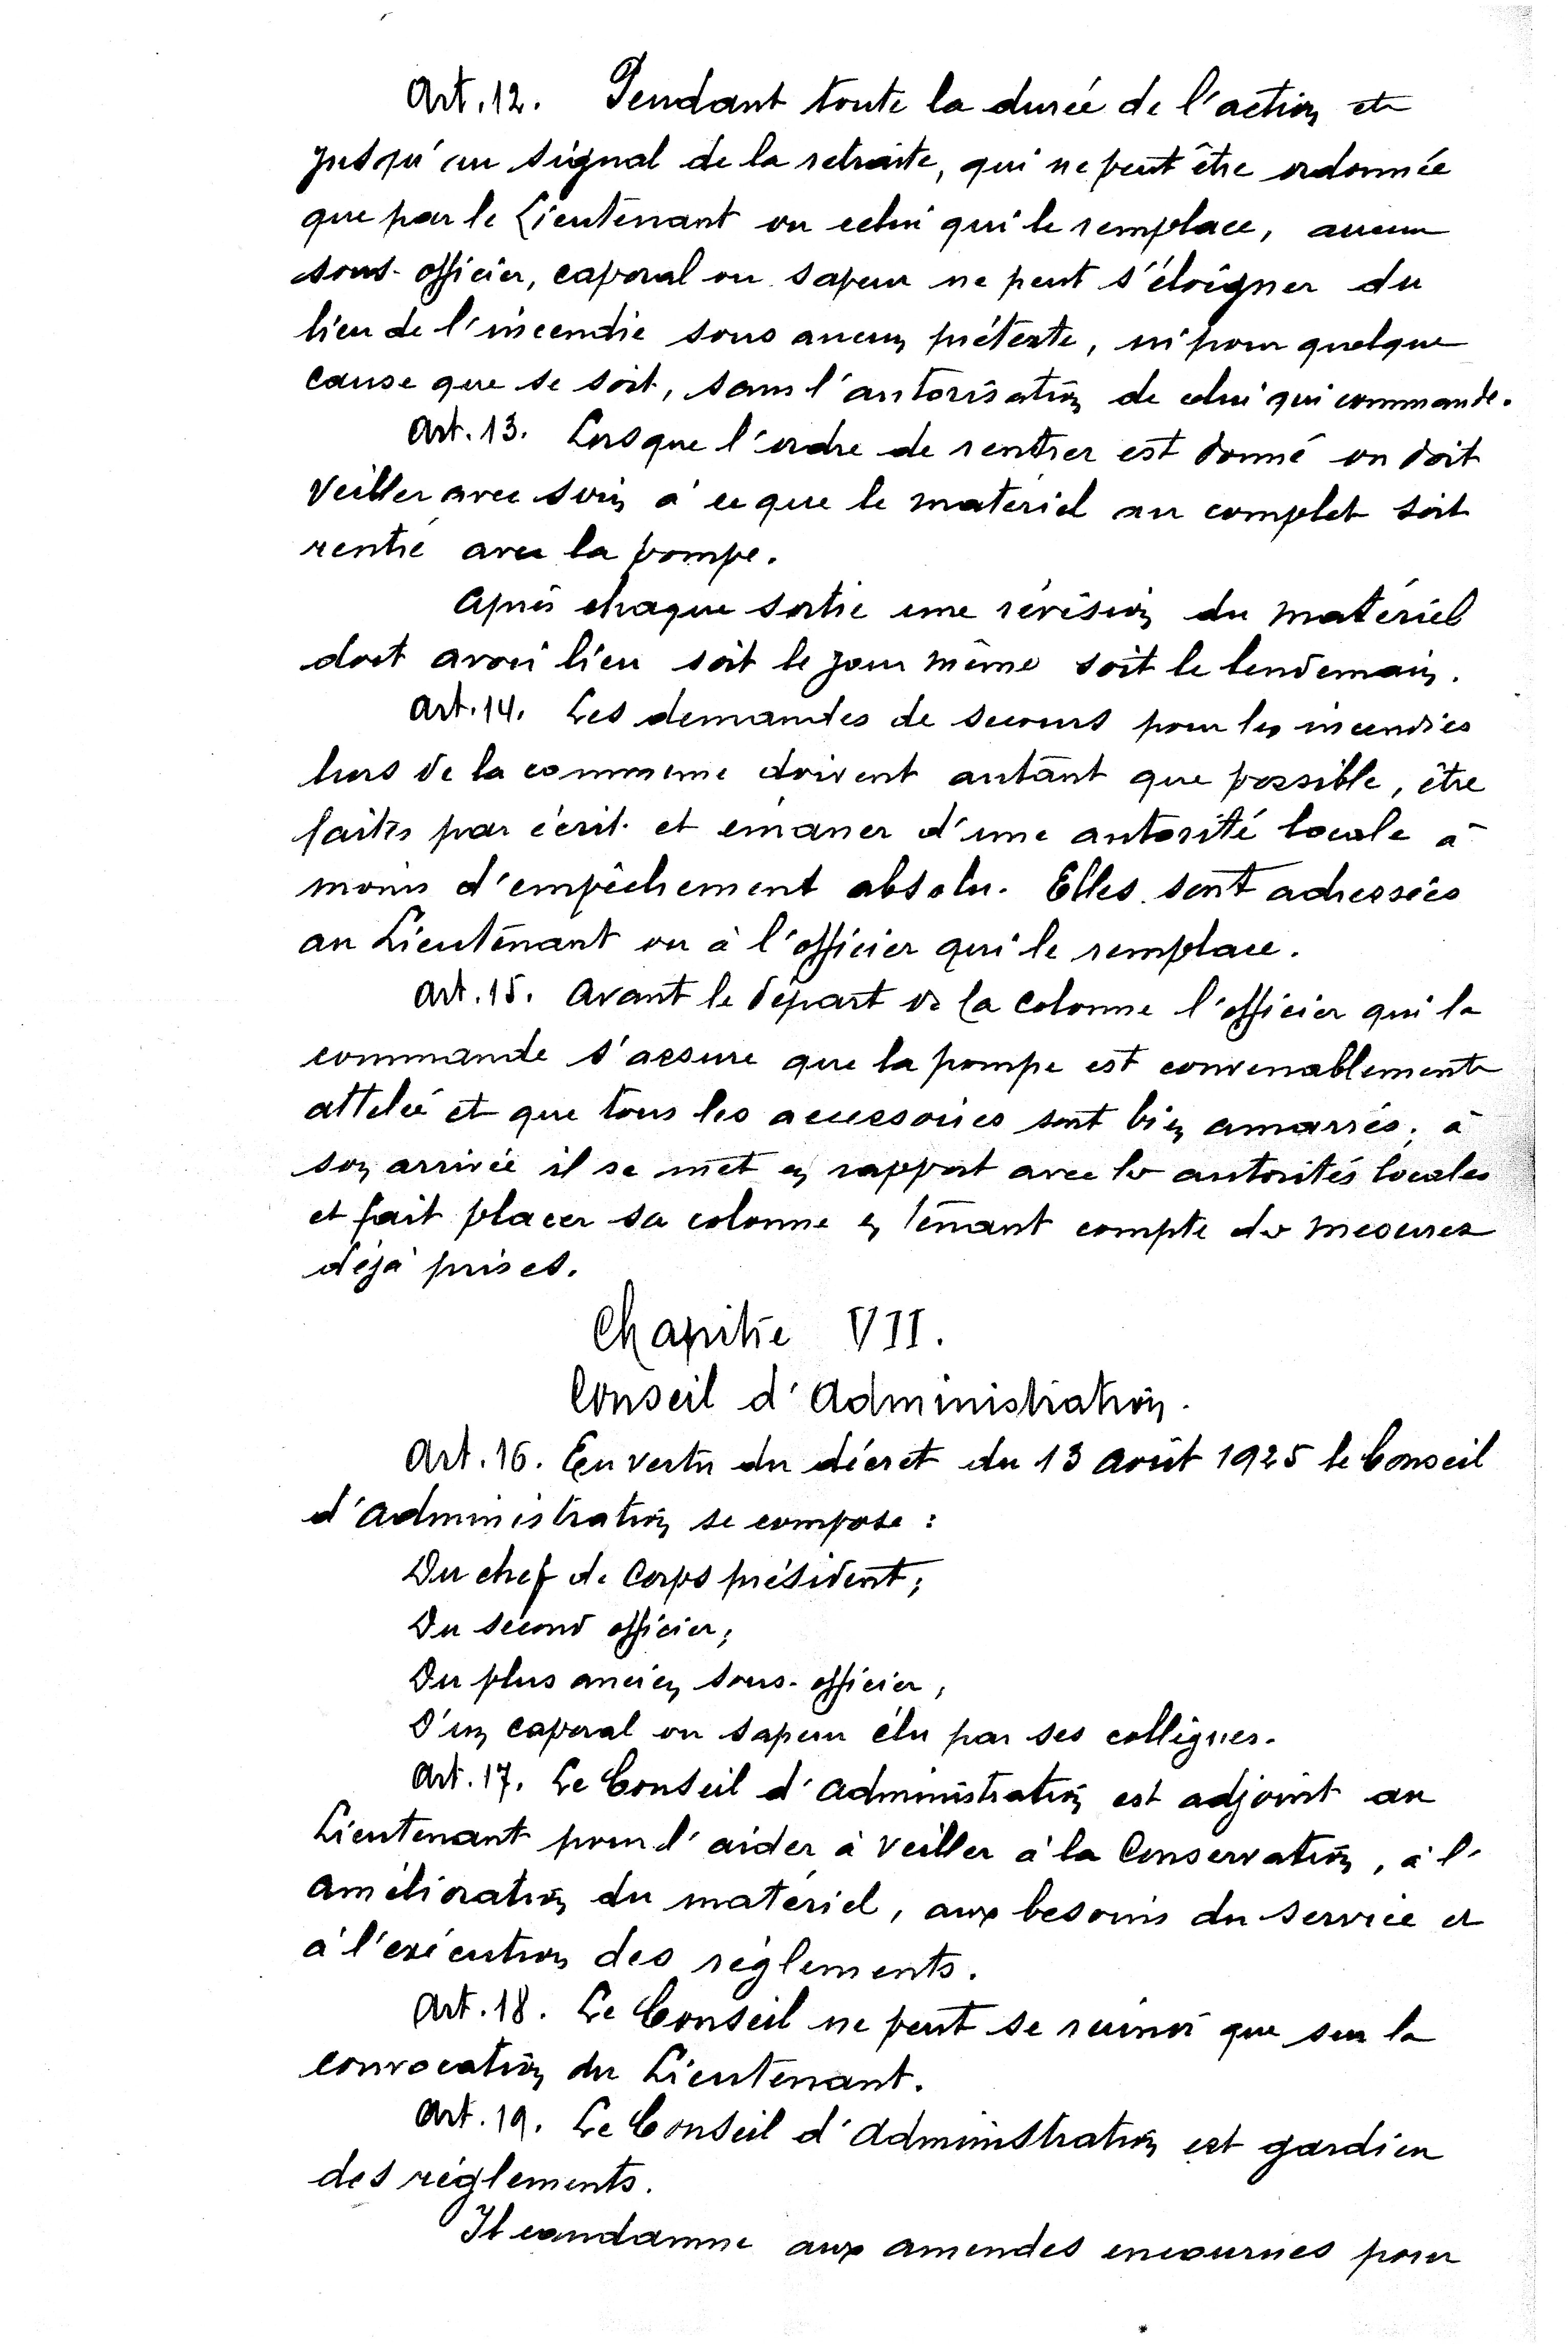 Art. 12. Pendant toute la durée de l'action et
jusqu'au signal de la retraite, qui ne peut être ordonnée
que par le Lieutenant ou celui qui le remplace, aucun
sous-officier, caporal ou sapeur ne peut s'éloigner du
lieu de l'incendie sous aucun prétexte, ni pour quelque
cause que se soit, sans l'autorisation de celui qui commande.
Art. 13. Lorsque l'ordre de rentrer est donné on doit
veiller avec soin à ce que le matériel au complet soit
rentré avec la pompe.
Après chaque sortie une révision du matériel
doit avoir lieu soit le jour même soit le lendemain.
Art. 14. Les demandes de secours pour les incendies
hors de la commune doivent autant que possible, être
faites par écrit et émaner d'une autorité locale à
moins d'empêchement absolu. Elles sont adressées
au Lieutenant ou à l'officier qui le remplace.
Art. 15. Avant le départ de la colonne l'officier qui la
commande s'assure que la pompe est convenablement
attelée et que tous les accessoires sont bien amarrés; à
son arrivée il se met en rapport avec les autorités locales
et fait placer sa colonne en tenant compte des mesures
déjà prises.
Chapitre VII.
Conseil d'Administration.
Art. 16. En vertu du décret du 13 Août 1925 le Conseil
d'Administration se compose :
Du chef de Corps président;
Du second officier;
Du plus ancien sous-officier,
D'un caporal ou sapeur élu par ses collègues.
Art. 17. Le Conseil d'Administration est adjoint au
Lieutenant pour l'aider à veiller à la Conservation, à l'
amélioration du matériel, aux besoins du service et
à l'exécution des règlements.
Art. 18. Le Conseil ne peut se réunir que sur la
convocation du Lieutenant.
Art. 19. Le Conseil d'Administration est gardien
des règlements.
Il condamne aux amendes encourues pour